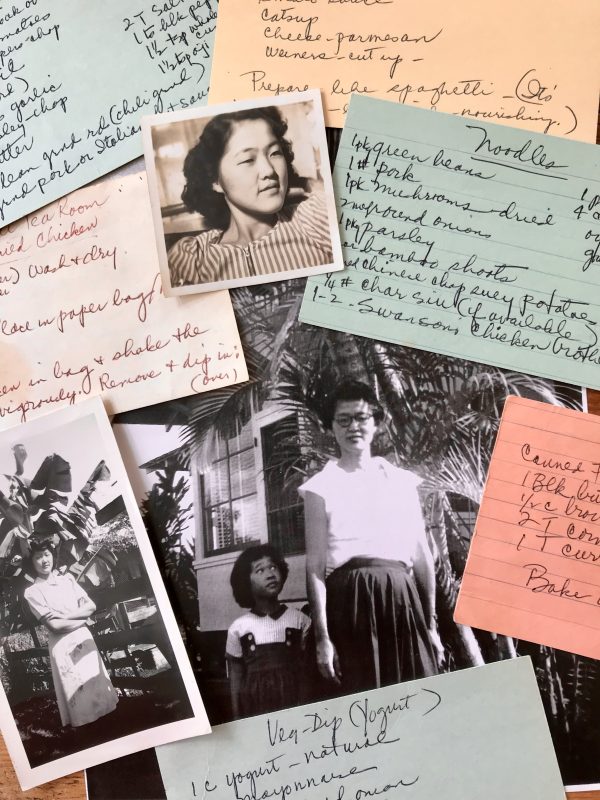 matoes
-chop
garlic
-chop
2 T Sal
1 t blk pep
1½ t
1½ t
lean grnd rd (chili grind)
grnd pork or Italian
Catsup
Cheese-parmesan
Weiners-cut up-
Prepare like spaghetti - (It's
nourishing.)
Noodles
1 pkg green beans
1 # pork
1 pk mushrooms-dried
2 mefround onions
1 pkg parsley
bamboo shoots
Chinese chop suey potatoes
¼ # char siu (if available)
1-2 - Swansons Chicken brothe
Tea Room
Fried Chicken
wash & dry.
lace in paper bag
en in bag & shake the
vigroudy. Remove & dip in:
(over)
Canned
1 Blk bu
½ c brow
2 T corn
1 T curr
Bake
Veg-Dip (Yogurt)
1 c yogurt - natural
mayonnaise
onion